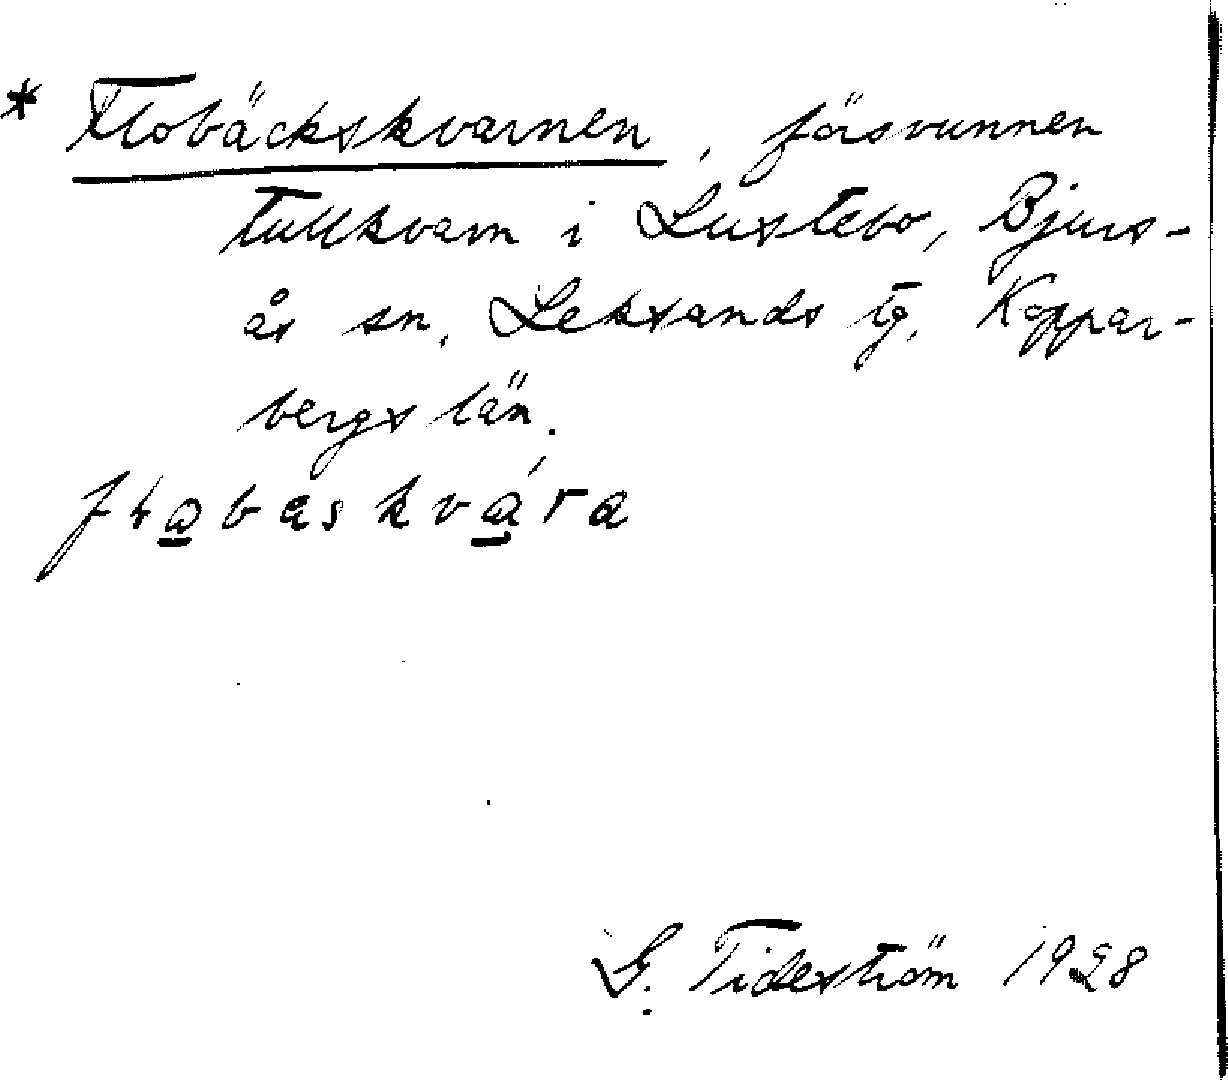 * Flobäckskvarnen, försvunnen
tullkvarn i Lustebo, Bjurs-
ås sn, Leksands tg, Koppar-
bergs län.
flabaskvára
G. Tideström 1928